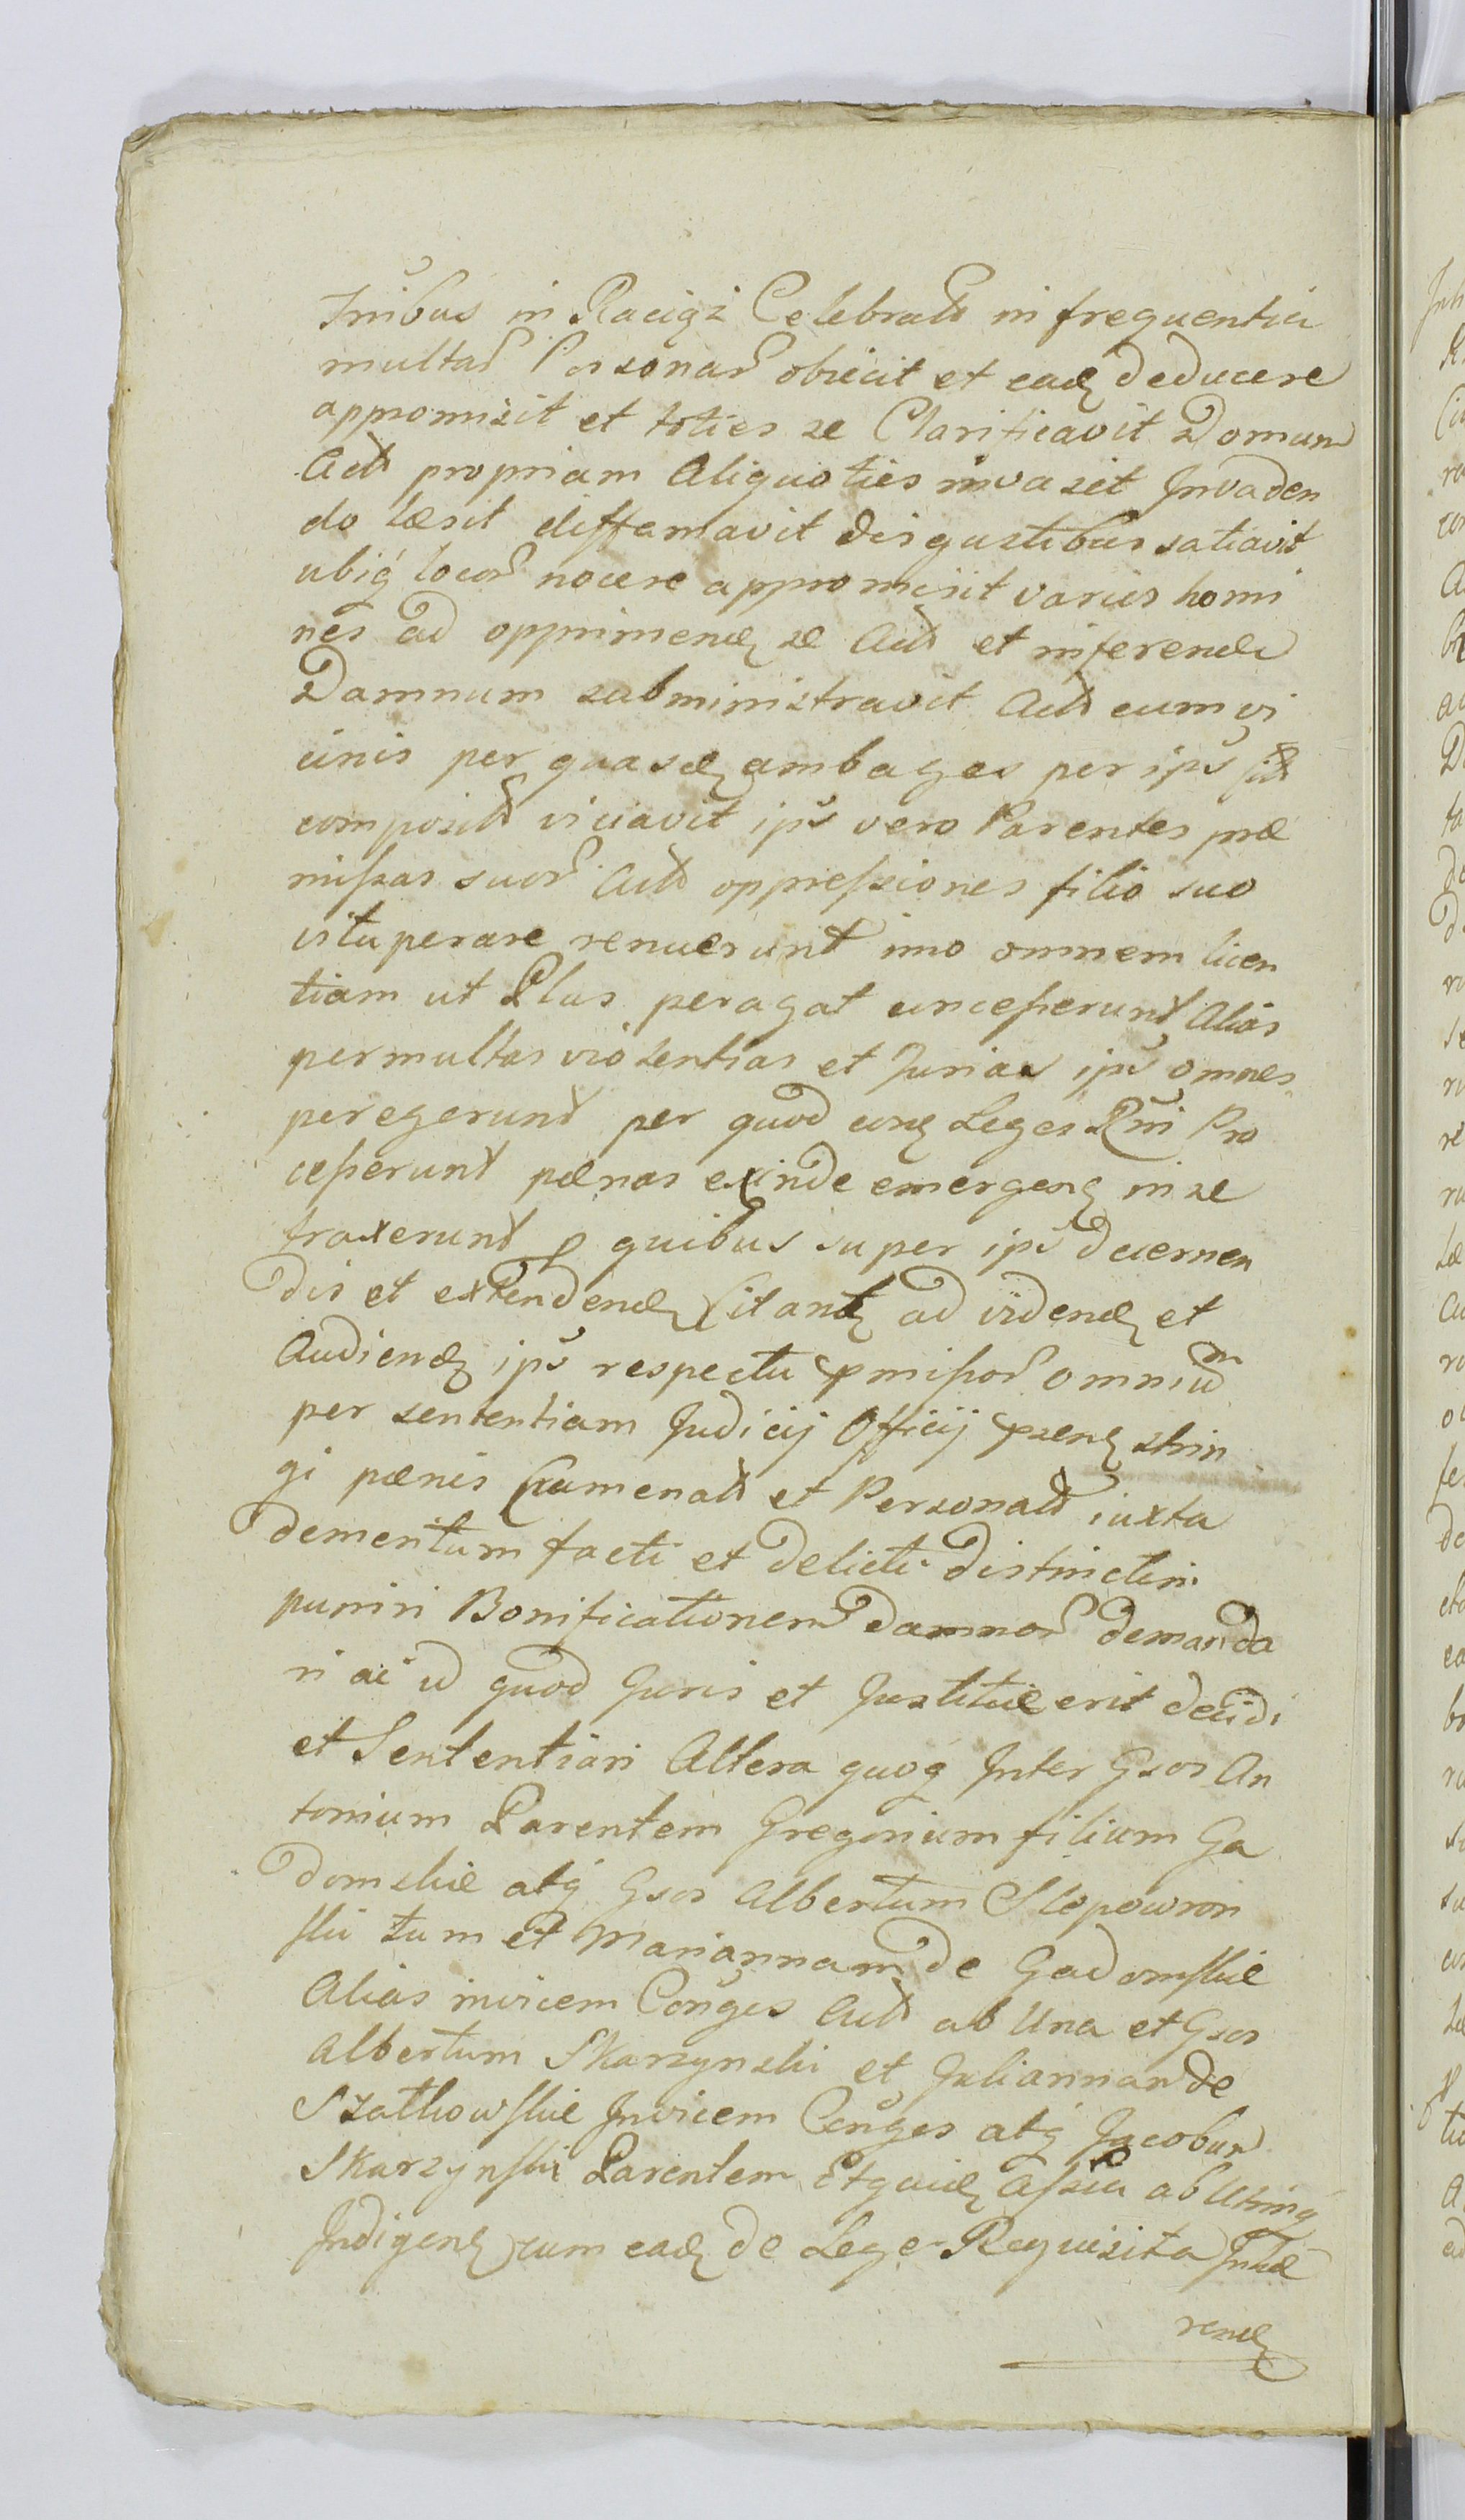 in Raciąż Celebratis in frequentia
multar Personar obiecit et ead deducere
appromisit et toties se Clarificavit Domum
Act propriam Aliquoties invasit Invaden
do læsit diffamavit disgustibus satiavit
ubiq locor nocere appromisit varios homi
nes ad opprimend se Act et inferend
Damnum subministravit Act cum vi
cinis per quasd ambages per ips
composit viciavit ips vero Parentes præ
missas suor Act oppressiones filio suo
vituperare renuerunt imo omnem licen
tiam ut Plus peragat concesserunt Alias
permultas violentias et Iurias ips omnes
peregerunt per quod conq Leges Rni Pro
cesserunt pænas exinde emergen in se
traxerunt p quibus super ips decernen
dis et extendend Citant ad vidend et
Audiend ips respectu pmissor omniu
per sententiam Judicij Officij psen strin
gi pænis et Personal iuxta
demeritum facti et delicti distinctim
puniri Bonificationem damnor demanda
ri ac id quod Juris et Justitiæ erit decidi
et Sententiari Altera quoq Inter Gsos An
tonium Parentem Gregorium filium Ga
domskie atq Gsos Albertum Slepowron
ski tum et Mariannam de Gadomskie
Alias invicem Conges Act ab Una et Gsos
Albertum Skarzynski et Juliannam de
Szatkowskie Invicem Conges atq Jacobum
Skarzynski Parentem Etquid ab Utrinq
Indigen cum ead de Lege Requisita Inhæ
rend